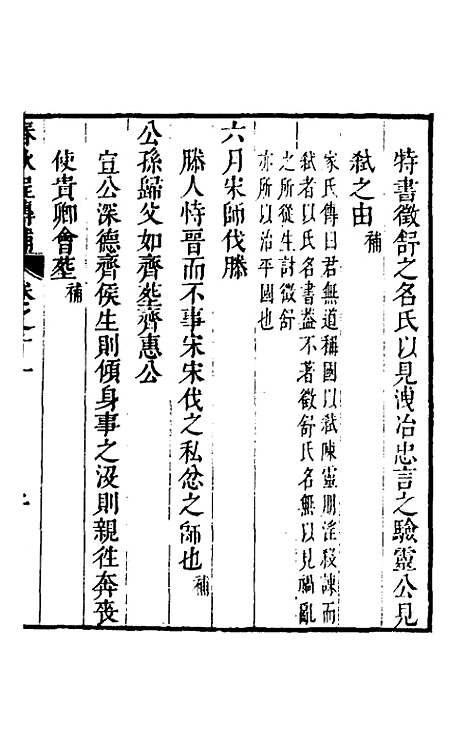 特書徵舒之名氏以見洩冶忠言之驗靈公見
弒之由補
家氏傳曰君無道稱國以弒陳靈朋淫殺諫而
弒者以氏名書蓋不著徵舒氏名無以見禍亂
之所從生討徵舒
亦所以治平國也
六月宋師伐滕
滕人恃晉而不事宋宋伐之私忿之師也補
公孫歸父如齊葬齊惠公
宣公深德齊侯生則傾身事之沒則親徃奔喪
使貴卿會葬補
春秋程傳補
卷之十一